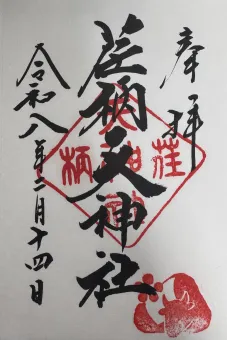 奉拝
荏柄天神社
令和八年二月十四日
荏
柄